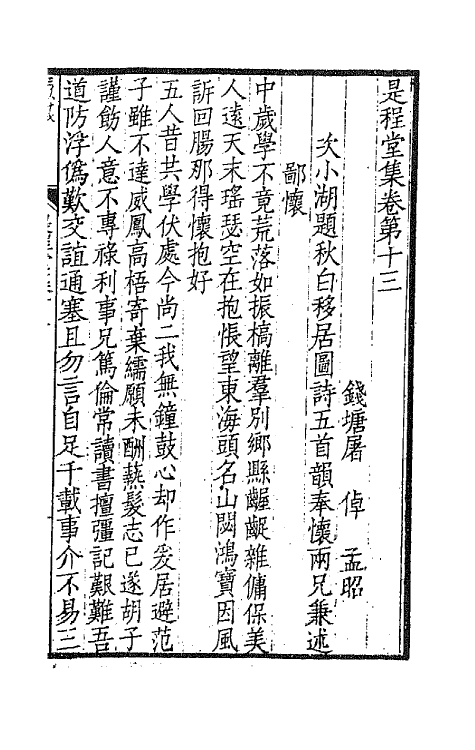 是程堂集卷第十三
錢塘屠倬孟昭
次小湖題秋白移居圖詩五首韻奉懷兩兄兼述
鄙懷
中歲學不竟荒落如振槁離羣别鄉縣齷齪雜傭保美
人遠天末瑤瑟空在抱悵望東海頭名山閟鴻寶因風
訴回腸那得懷抱好
五人昔共學伏處今尚二我無鐘鼓心却作爰居避范
子雖不達威鳳高梧寄棄繻願未酬爇髮志已遂胡子
謹飭人意不專祿利事兄篤倫常讀書擅彊記艱難吾
道防浮僞歎交誼通塞且勿言自足千載事介不易三